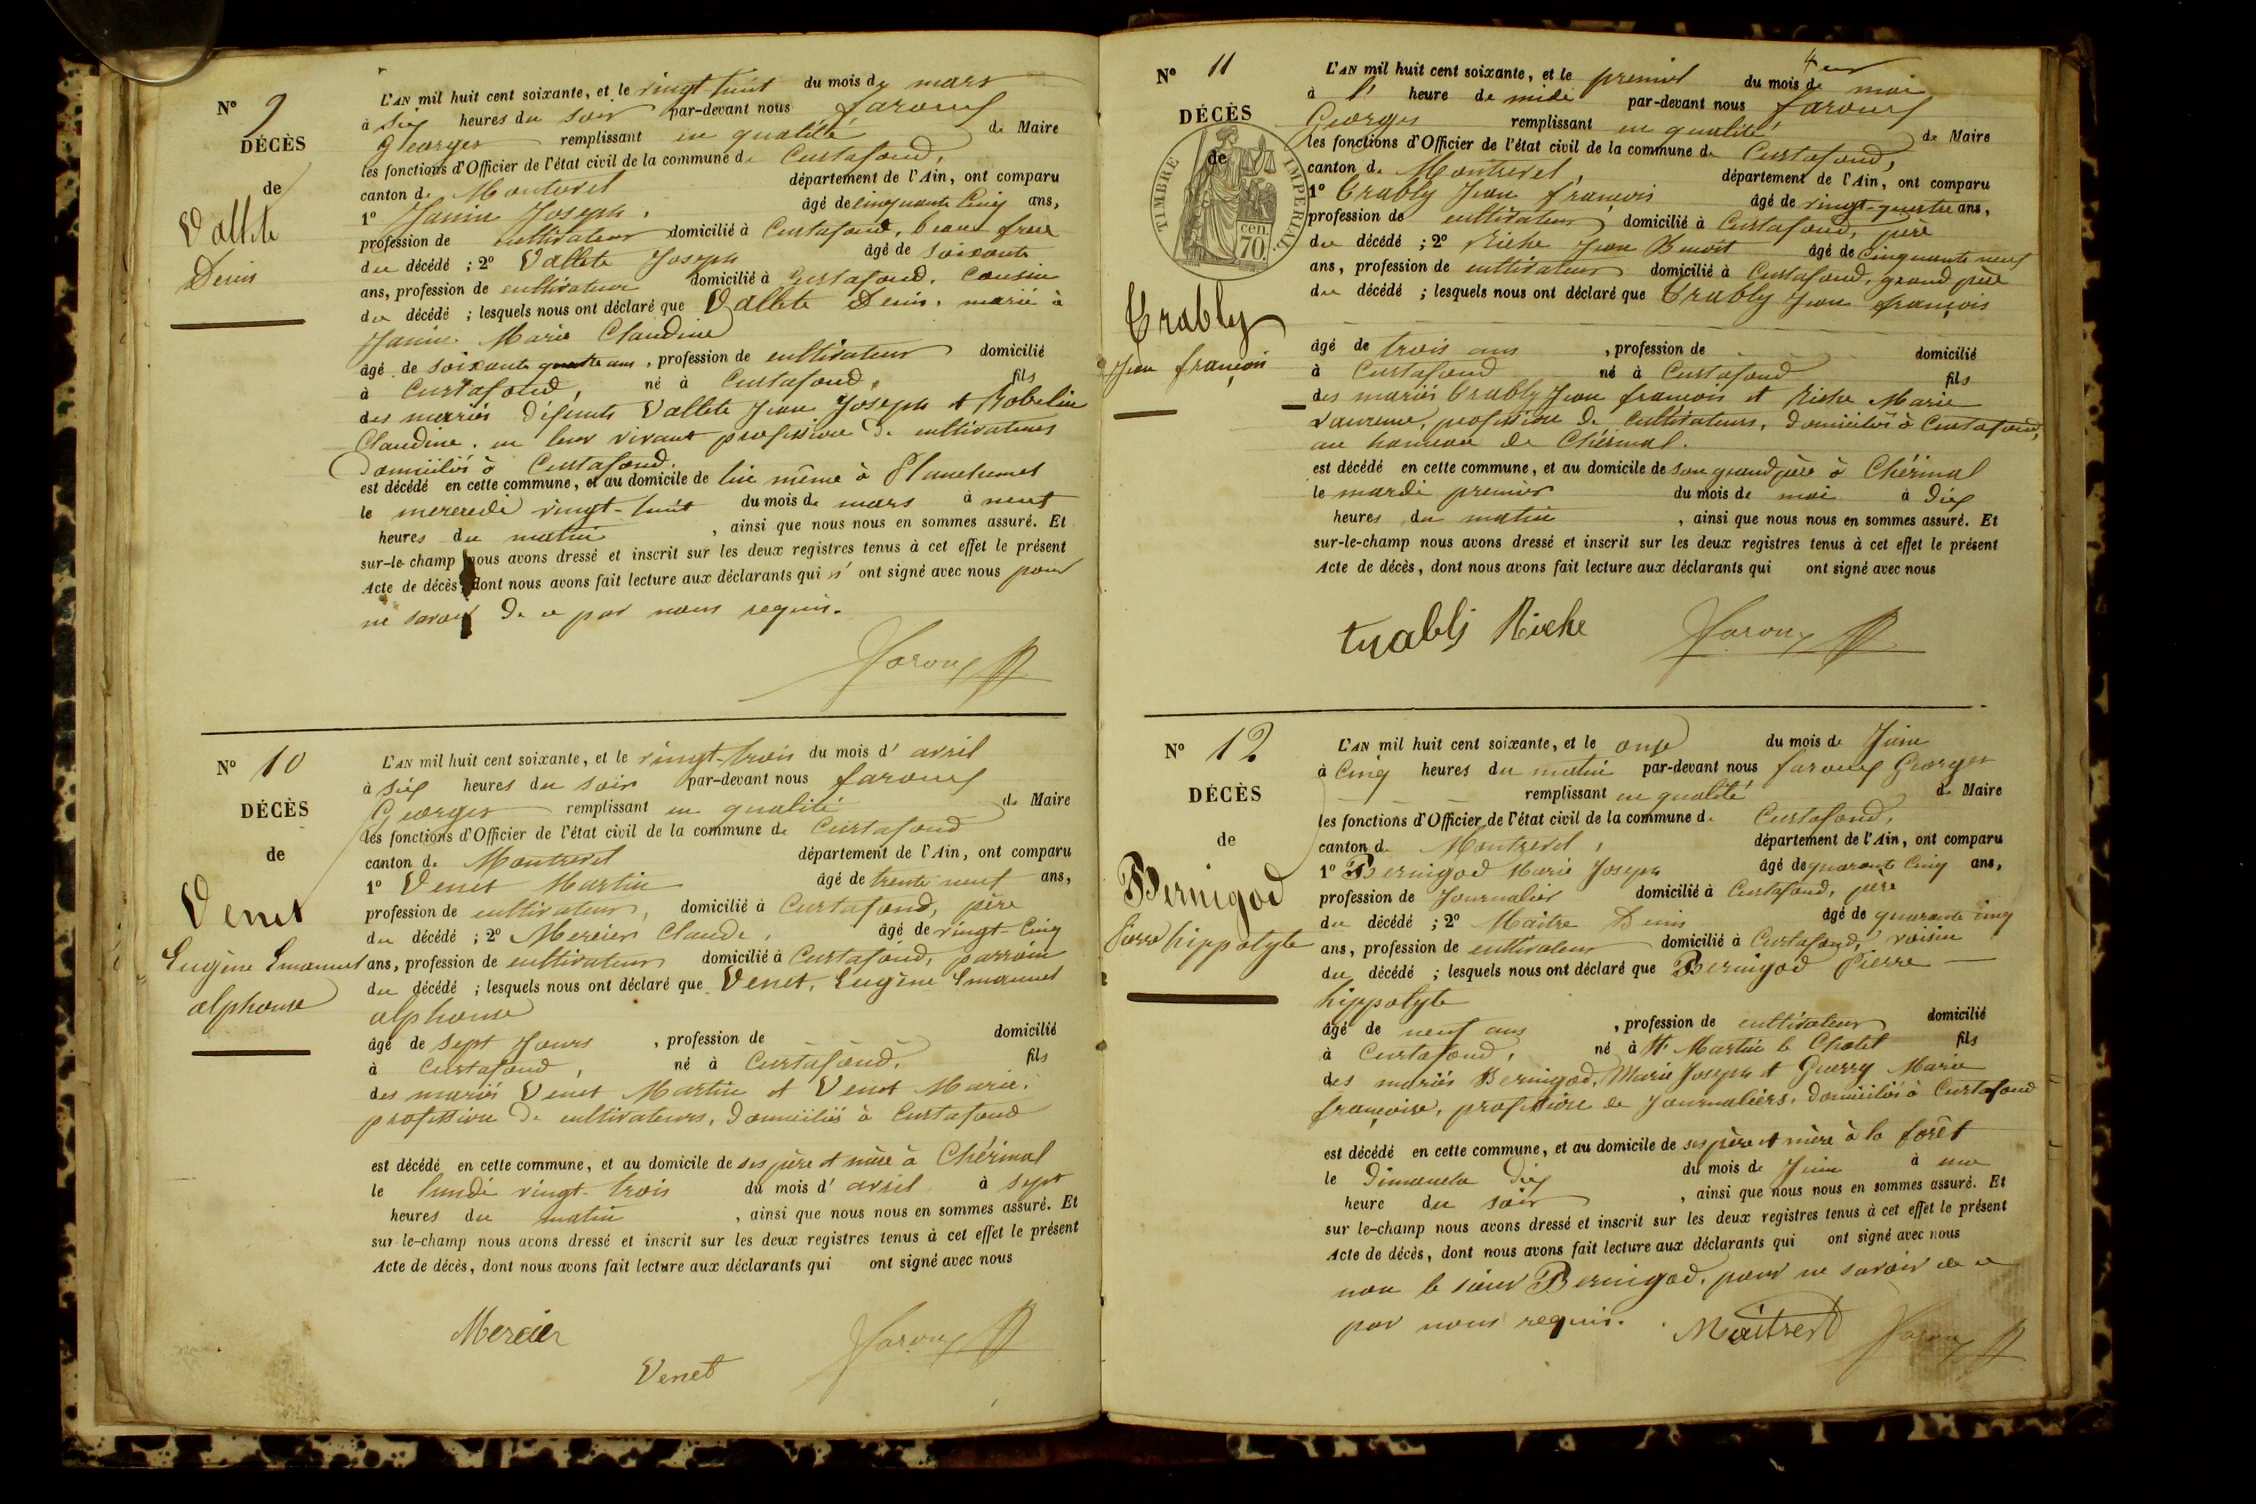 N° 9
DÉCÈS
de
Vallete
Denis
L'AN mil huit cent soixante, et le vingt-huit du mois de mars
à six heures du soir par-devant nous faroux
Georges remplissant en qualité de Maire
les fonctions d'Officier de l'état civil de la commune de Curtafond,
canton de Montrevel département de l'Ain, ont comparu
1° Janin Joseph, âgé de cinquante cinq ans,
profession de cultivateur domicilié à Curtafond, beau frère
du décédé ; 2° Vallete Joseph âgé de soixante
ans, profession de cultivateur domicilié à Curtafond, cousin
du décédé ; lesquels nous ont déclaré que Vallete Denis, marié à
Janin Marie Claudine
âgé de soixante quatre ans, profession de cultivateur domicilié
à Curtafond, né à Curtafond, fils
des mariés défunts Vallete Jean Joseph et Robelin
Claudine, en leur vivant profession de cultivateurs
domiciliés à Curtafond.
est décédé en cette commune, et au domicile de lui même à
le mercredi vingt-huit du mois de mars à neuf
heures du matin, ainsi que nous nous en sommes assuré. Et
sur-le-champ nous avons dressé et inscrit sur les deux registres tenus à cet effet le présent
Acte de décès, dont nous avons fait lecture aux déclarants qui n' ont signé avec nous pour
ne savoir de ce par nous requis.
Faroux
N° 10
DÉCÈS
de
Venet
Eugène Emanuel
alphonse
L'AN mil huit cent soixante, et le vingt-trois du mois d' avril
à six heures du soir par-devant nous faroux
Georges remplissant en qualité de Maire
les fonctions d'Officier de l'état civil de la commune de Curtafond
canton de Montrevel département de l'Ain, ont comparu
1° Venet Martin âgé de trente neuf ans,
profession de cultivateur, domicilié à Curtafond, père
du décédé ; 2° Mercier Claude, âgé de vingt cinq
ans, profession de cultivateur domicilié à Curtafond, parrain
du décédé ; lesquels nous ont déclaré que Venet, Eugène Emanuel
alphonse
âgé de sept jours, profession de domicilié
à Curtafond, né à Curtafond, fils
des mariés Venet Martin et Venet Marie,
profession de cultivateurs, domiciliés à Curtafond
est décédé en cette commune, et au domicile de ses père et mère à Chérinal
le lundi vingt-trois du mois d' avril à sept
heures du matin, ainsi que nous nous en sommes assuré. Et
sur le-champ nous avons dressé et inscrit sur les deux registres tenus à cet effet le présent
Acte de décès, dont nous avons fait lecture aux déclarants qui ont signé avec nous
Mercier
Venet
Faroux
N° 11
DÉCÈS
de
TIMBRE IMPERIAL
70 cen.
Trably
Jean françois
L'AN mil huit cent soixante, et le premier du mois de mai
à l' heure de midi par-devant nous faroux
Georges remplissant en qualité de Maire
les fonctions d'Officier de l'état civil de la commune de Curtafond,
canton de Montrevel, département de l'Ain, ont comparu
1° Trably Jean françois âgé de vingt-quatre ans,
profession de cultivateur domicilié à Curtafond, père
du décédé ; 2° Riche Jean Benoit âgé de cinquante neuf
ans, profession de cultivateur domicilié à Curtafond, grand père
du décédé ; lesquels nous ont déclaré que Trably Jean françois
âgé de trois ans, profession de domicilié
à Curtafond né à Curtafond fils
des mariés Trably Jean francois et Riche Marie
Laurence, profession de cultivateurs, domiciliés à Curtafond,
au hameau de Chérinal.
est décédé en cette commune, et au domicile de son grand père à Chérinal
le mardi premier du mois de mai à dix
heures du matin, ainsi que nous nous en sommes assuré. Et
sur-le-champ nous avons dressé et inscrit sur les deux registres tenus à cet effet le présent
Acte de décès, dont nous avons fait lecture aux déclarants qui ont signé avec nous
trabli Riche Faroux
N° 12
DÉCÈS
de
Bernigod
Pierre hippolyte
L'AN mil huit cent soixante, et le onze du mois de Juin
à cinq heures du matin par-devant nous faroux Georges
remplissant en qualité de Maire
les fonctions d'Officier de l'état civil de la commune de Curtafond,
canton de Montrevel, département de l'Ain, ont comparu
1° Bernigod Marie Joseph âgé de quarante cinq ans,
profession de Journalier domicilié à Curtafond, père
du décédé ; 2° Maitre Denis âgé de quarante cinq
ans, profession de cultivateur domicilié à Curtafond, voisin
du décédé ; lesquels nous ont déclaré que Bernigod Pierre
hippolyte
âgé de neuf ans, profession de cultivateur domicilié
à Curtafond, né à St Martin le Chatel fils
des mariés Bernigod, Marie Joseph et Guerry Marie
françoise, profession de Journaliers, domiciliés à Curtafond
est décédé en cette commune, et au domicile de ses père et mère à la forêt
le Dimanche dix du mois de Juin à une
heure du soir, ainsi que nous nous en sommes assuré. Et
sur le-champ nous avons dressé et inscrit sur les deux registres tenus à cet effet le présent
Acte de décès, dont nous avons fait lecture aux déclarants qui ont signé avec nous
non le sieur Bernigod, pour ne savoir de ce
par nous requis. Maitre D Faroux